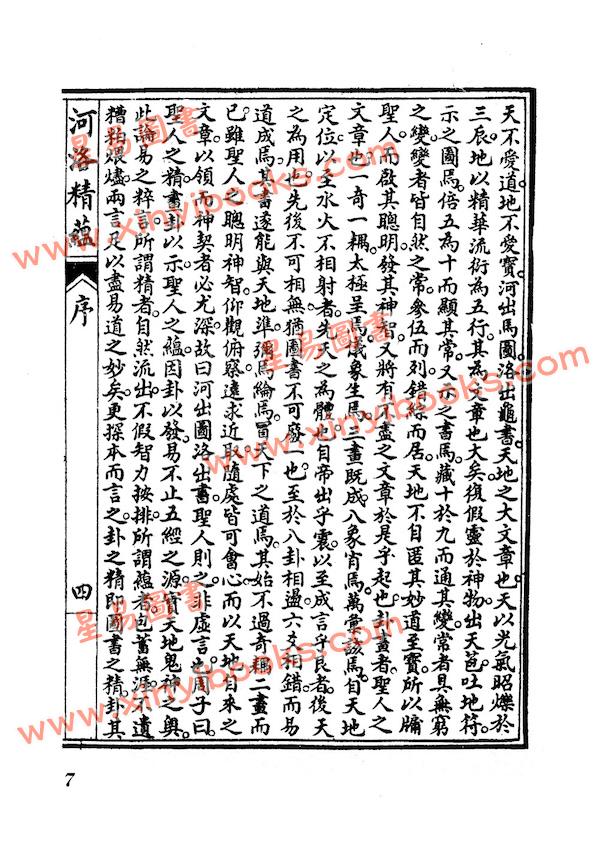 天不愛道地不愛寶河出馬圖洛出龜書天地之大文章也天以光氣昭爍於
三辰地以精華流衍為五行其為文章也大矣復假靈於神物出天苞吐地符
示之圖焉倍五為十而顯其常又示之書焉藏十於九而通其變常者具無窮
之變變者皆自然之常參伍而列錯綜而居天地不自匿其妙道至寶所以牖
聖人而啟其聰明發其神智又將有不盡之文章於是乎起也卦畫者聖人之
文章也一奇一耦太極呈焉儀象生焉三畫既成八象肖焉萬彙該焉自天地
定位以至水火不相射者先天之為體也自帝出乎震以至成言乎艮者後天
之為用也先後不可相無猶圖書不可廢一也至於八卦相盪六爻相錯而易
道成焉其書遂能與天地準彌焉綸焉冒天下之道焉其始不過奇耦二畫而
已雖聖人之聰明神智仰觀俯察遠求近取隨處皆可會心而以天地自來之
文章以領而神契者必尤深故曰河出圖洛出書聖人則之非虛言也周子曰
聖人之精畫卦以示聖人之蘊因卦以發易不止五經之源實天地鬼神之奧
此論易之粹言所謂精者自然流出不假智力按排所謂蘊者包蓄無涯不遺
糟粕煨燼兩言足以盡易道之妙矣更探本而言之卦之精即圖書之精卦其
河洛精蘊
序
四
7
星易圖書
www.xinyibooks.com
星易圖書
www.xinyibooks.com
星易圖書
www.xinyibooks.com